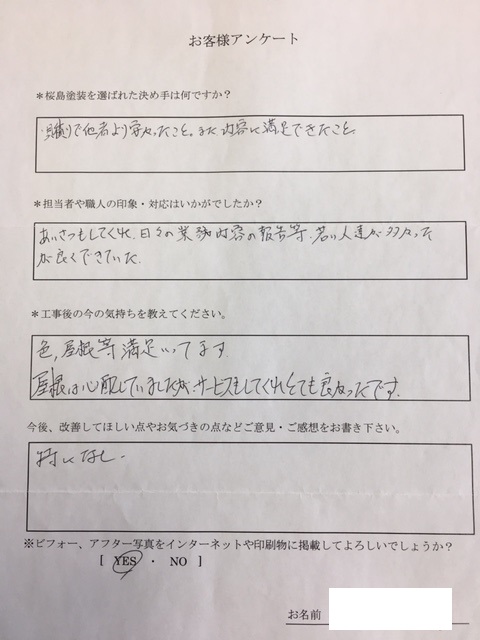 お客様アンケート
＊桜島塗装を選ばれた決め手は何ですか？
・見積りで他者より安かったこと。また内容に満足できたこと。
＊担当者や職人の印象・対応はいかがでしたか？
あいさつもしてくれ、日々の業務内容の報告等、若い人達が多かった
が良くできていた。
＊工事後の今の気持ちを教えてください。
色、屋根等満足いってます。
屋根は心配していましたが、サービスもしてくれとても良かったです。
今後、改善してほしい点やお気づきの点などご意見・ご感想をお書き下さい。
特になし.
※ビフォー、アフター写真をインターネットや印刷物に掲載してよろしいでしょうか？
[ YES ・ NO ]
お名前